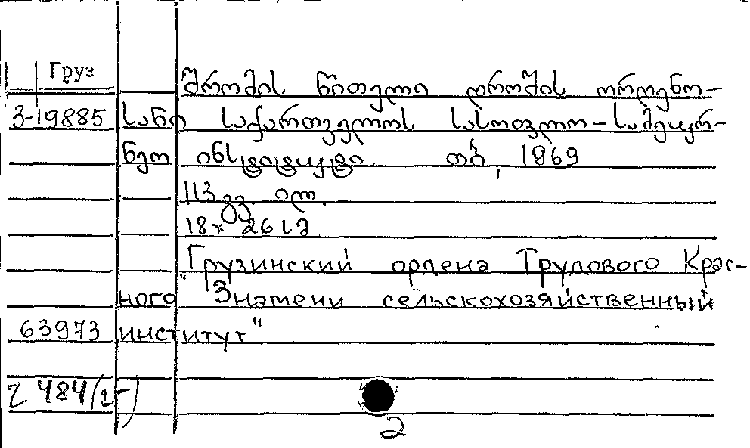 Груз
შრომის წითელი დროშის ორდენო-
3-19885 სანი საქართველოს სასოფლო-სამეურ-
ნეო ინსტიტუტი. თბ, 1969
113 გვ. ილ.
18× 26 სმ
"Грузинский ордена Трудового Крас-
ного Знамени сельскохозяйственный
63973 институт"
484
2